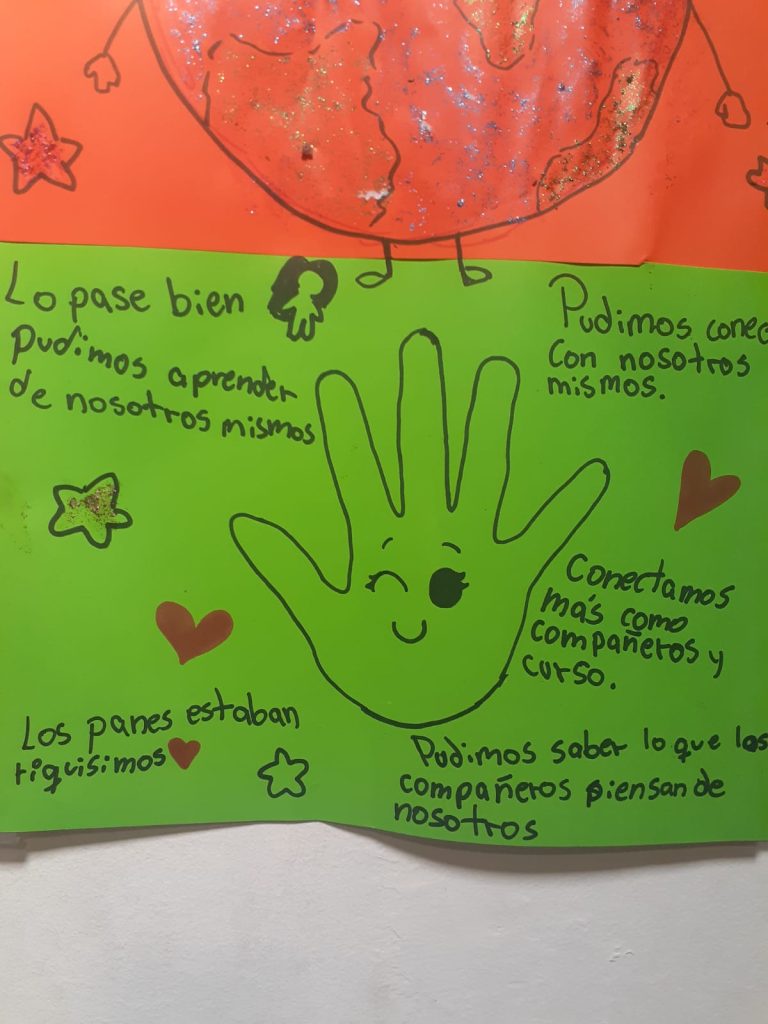 Lo pase bien
Pudimos aprender
de nosotros mismos
Pudimos conec
con nosotros
mismos.
Conectamos
más como
compañeros y
curso.
Los panes estaban
riquisimos
Pudimos saber lo que los
compañeros piensan de
nosotros